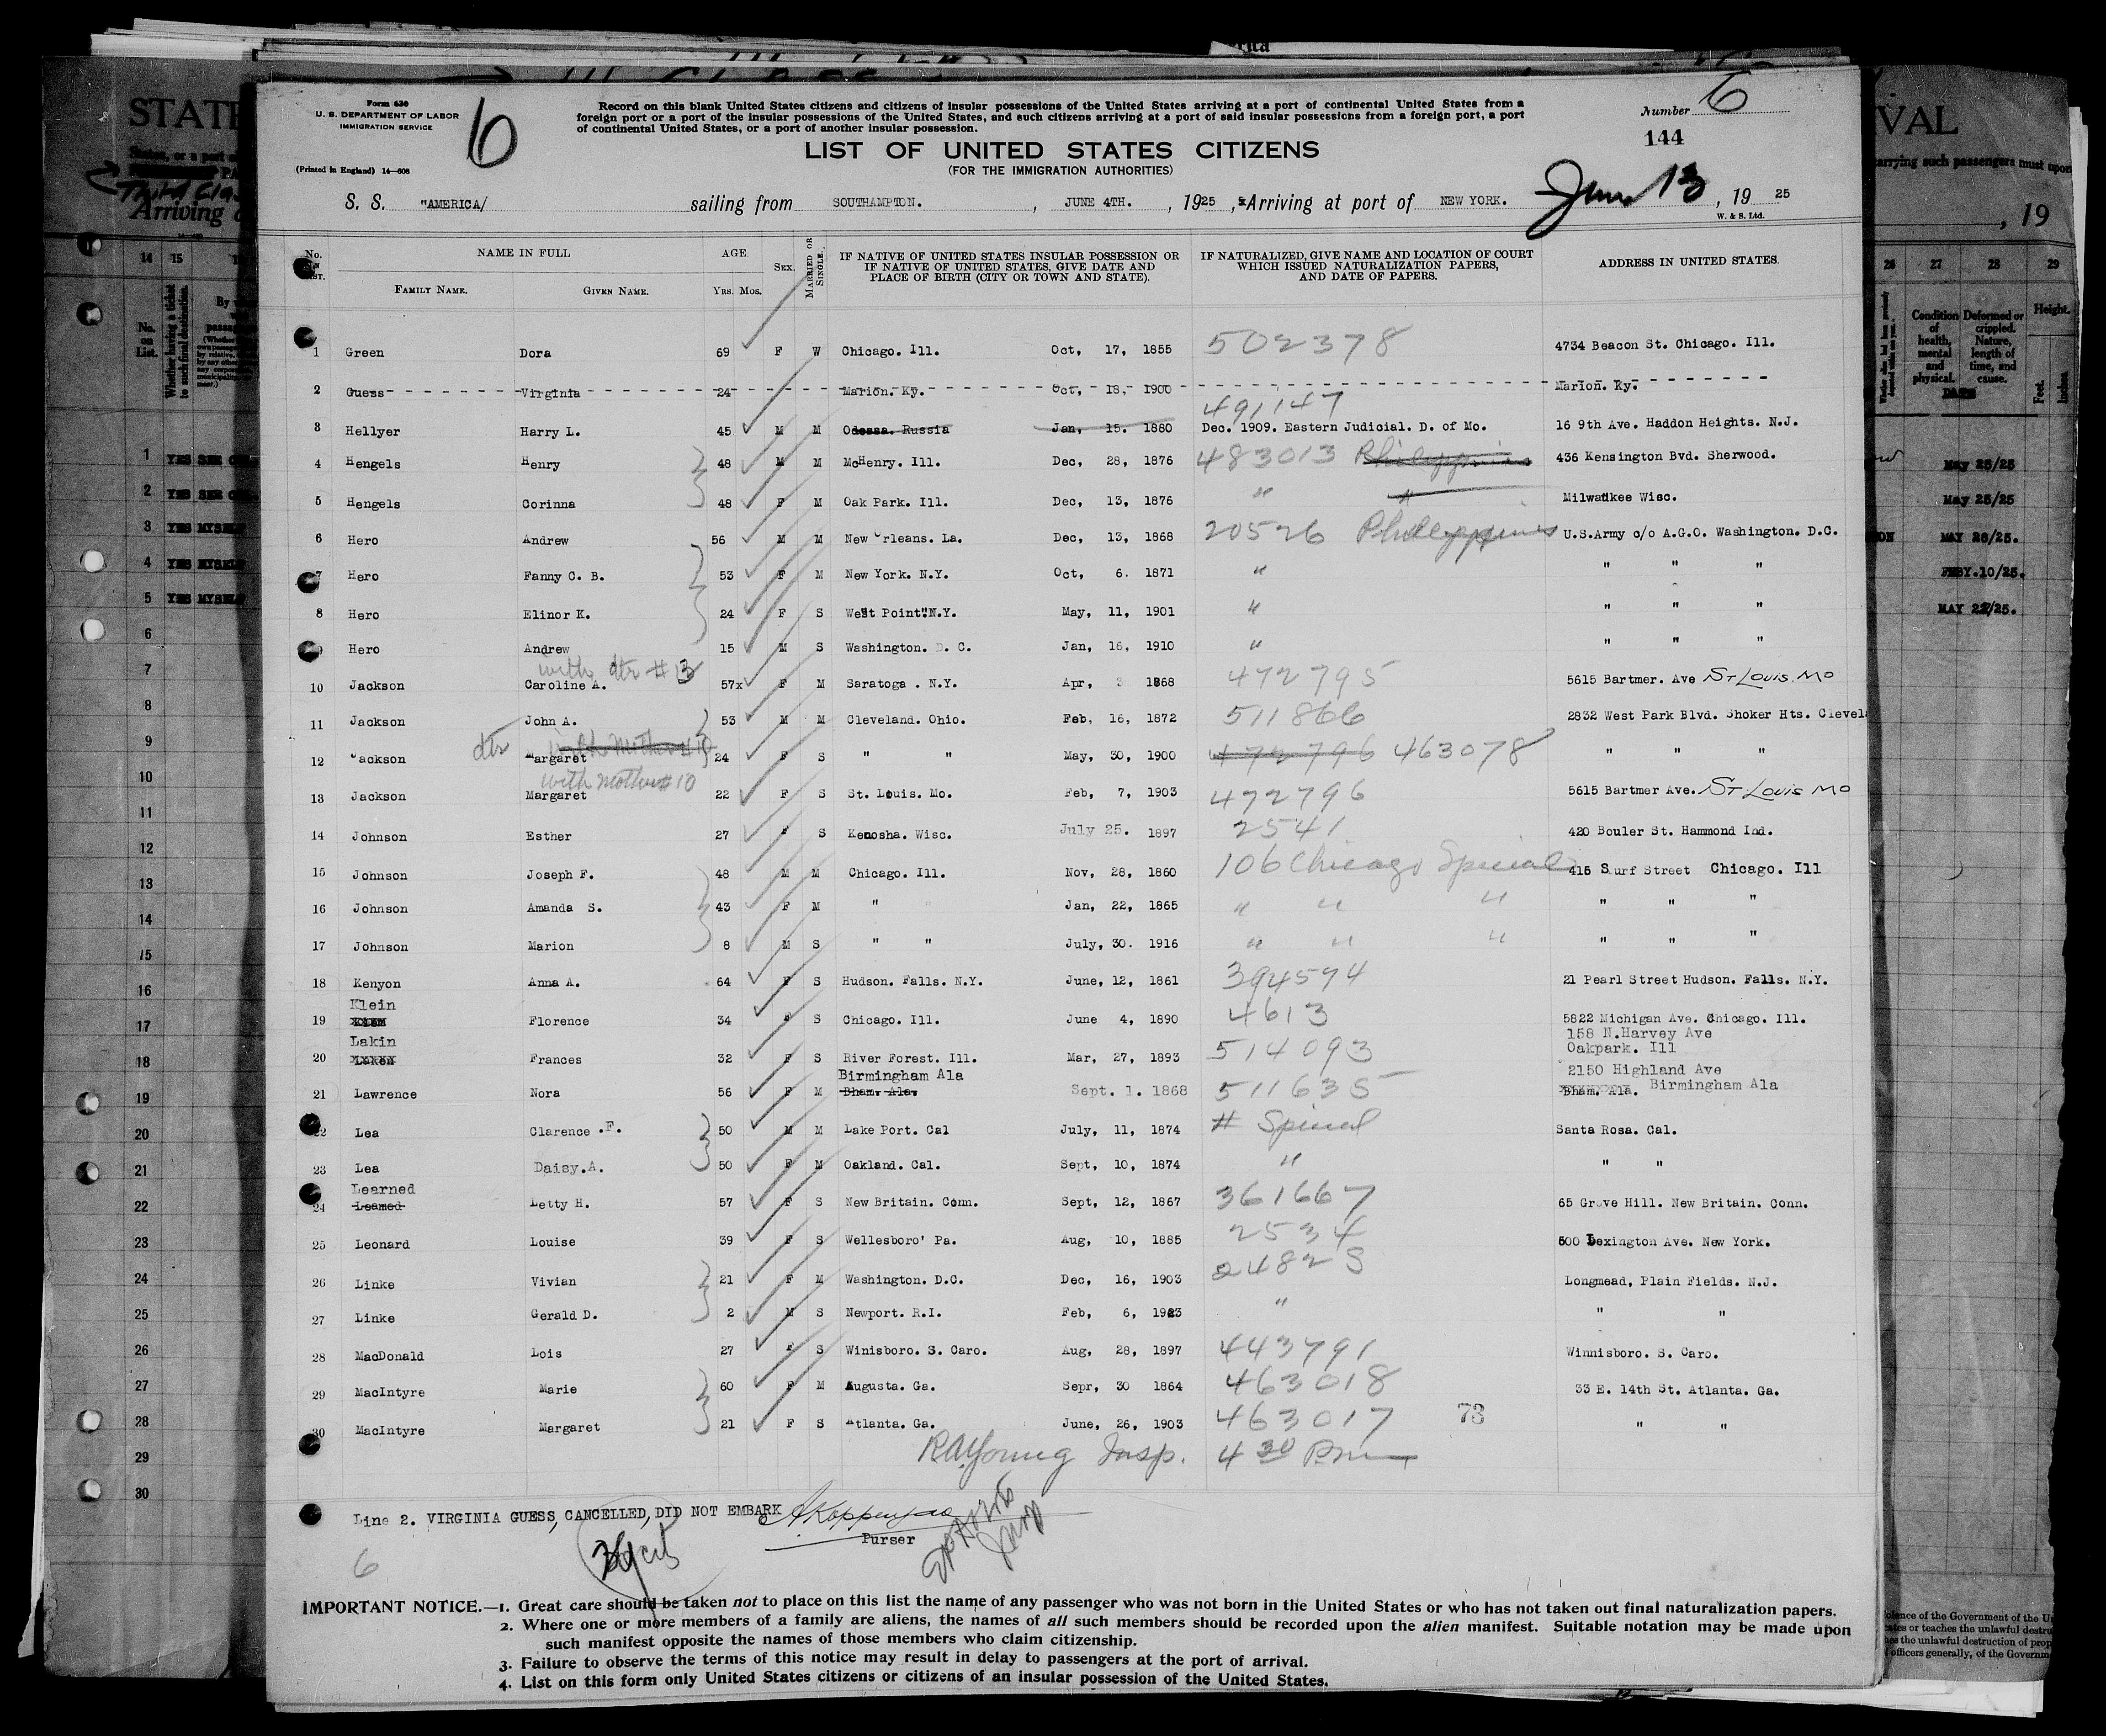 Form 630
U. S. DEPARTMENT OF LABOR
IMMIGRATION SERVICE
(Printed in England) 14—608
6
Record on this blank United States citizens and citizens of insular possessions of the United States arriving at a port of continental United States from a
foreign port or a port of the insular possessions of the United States, and such citizens arriving at a port of said insular possessions from a foreign port, a port
of continental United States, or a port of another insular possession.
Number 6
144
LIST OF UNITED STATES CITIZENS
(FOR THE IMMIGRATION AUTHORITIES)
S. S. "AMERICA/ sailing from SOUTHAMPTON. , JUNE 4TH. , 1925 , Arriving at port of NEW YORK. June 13 , 19 25
W. & S. Ltd.
No. ON LIST. NAME IN FULL FAMILY NAME. GIVEN NAME. AGE. YRS. MOS. SEX. MARRIED OR SINGLE. IF NATIVE OF UNITED STATES INSULAR POSSESSION OR IF NATIVE OF UNITED STATES, GIVE DATE AND PLACE OF BIRTH (CITY OR TOWN AND STATE). IF NATURALIZED, GIVE NAME AND LOCATION OF COURT WHICH ISSUED NATURALIZATION PAPERS, AND DATE OF PAPERS. ADDRESS IN UNITED STATES.
1 Green Dora 69 F W Chicago. Ill. Oct, 17, 1855 502378 4734 Beacon St. Chicago. Ill.
2 Guess Virginia 24 Marion. Ky. Oct, 18, 1900 Marion. Ky.
491147
3 Hellyer Harry L. 45 M M Odessa. Russia Jan, 15. 1880 Dec. 1909. Eastern Judicial. D. of Mo. 16 9th Ave. Haddon Heights. N.J.
4 Hengels Henry 48 M M McHenry. Ill. Dec, 28, 1876 483013 Philippines 436 Kensington Bvd. Sherwood.
5 Hengels Corinna 48 F M Oak Park. Ill. Dec, 13, 1876 " " Milwaukee Wisc.
6 Hero Andrew 56 M M New Orleans. La. Dec, 13, 1868 20526 Philippines U.S.Army c/o A.G.O. Washington. D.C.
7 Hero Fanny C. B. 53 F M New York. N.Y. Oct, 6. 1871 " " " "
8 Hero Elinor K. 24 F S West Point"N.Y. May, 11, 1901 " " " "
9 Hero Andrew 15 M S Washington. D. C. Jan, 16, 1910 " " " "
with dtr # 13
10 Jackson Caroline A. 57x F M Saratoga . N.Y. Apr, 3 1868 472795 5615 Bartmer. Ave ST LOUIS. MO
11 Jackson John A. 53 M M Cleveland. Ohio. Feb, 16, 1872 511866 2832 West Park Blvd. Shoker Hts. Clevela
dtr with Mother #10
12 Jackson Margaret 24 F S " " May, 30, 1900 472796 463078 " " "
with mother # 10
13 Jackson Margaret 22 F S St. Louis. Mo. Feb, 7, 1903 472796 5615 Bartmer Ave. ST. LOUIS MO
14 Johnson Esther 27 F S Kenosha. Wisc. July 25. 1897 2541 420 Bouler St. Hammond Ind.
15 Johnson Joseph F. 48 M M Chicago. Ill. Nov, 28, 1860 106 Chicago Special 415 Surf Street Chicago. Ill
16 Johnson Amanda S. 43 F M " " Jan, 22, 1865 " " " " " "
17 Johnson Marion 8 M S " " July, 30. 1916 " " " " " "
18 Kenyon Anna A. 64 F S Hudson. Falls. N.Y. June, 12, 1861 394574 21 Pearl Street Hudson. Falls. N.Y.
Klein
19 Florence 34 F S Chicago. Ill. June 4, 1890 4613 5822 Michigan Ave. Chicago. Ill.
Lakin 158 N.Harvey Ave
20 Frances 32 F S River Forest. Ill. Mar, 27, 1893 514093 Oakpark. Ill
Birmingham Ala 2150 Highland Ave
21 Lawrence Nora 56 F M Bham. Ala. Sept. 1. 1868 511635 Bham. Ala. Birmingham Ala
22 Lea Clarence .F. 50 M M Lake Port. Cal July, 11, 1874 # Special Santa Rosa. Cal.
23 Lea Daisy.A. 50 F M Oakland. Cal. Sept, 10, 1874 " " "
Learned
24 Leamed Letty H. 57 F S New Britain. Conn. Sept, 12, 1867 361667 65 Grove Hill. New Britain. Conn.
25 Leonard Louise 39 F S Wellesboro' Pa. Aug, 10, 1885 2534 500 Lexington Ave. New York.
26 Linke Vivian 21 F M Washington. D.C. Dec, 16, 1903 24825 Longmead, Plain Fields. N.J.
27 Linke Gerald D. 2 M S Newport. R.I. Feb, 6, 1923 " " "
28 MacDonald Lois 27 F S Winisboro. S. Caro. Aug, 28, 1897 443791 Winnisboro. S. Caro.
29 MacIntyre Marie 60 F M Augusta. Ga. Sepr, 30 1864 463018 33 E. 14th St. Atlanta. Ga.
30 MacIntyre Margaret 21 F S Atlanta. Ga. June, 26, 1903 463017 73 " "
RA Young Insp. 4 30 Pm
Line 2. VIRGINIA GUESS, CANCELLED, DID NOT EMBARK
Purser
6
IMPORTANT NOTICE.—1. Great care should be taken not to place on this list the name of any passenger who was not born in the United States or who has not taken out final naturalization papers.
2. Where one or more members of a family are aliens, the names of all such members should be recorded upon the alien manifest. Suitable notation may be made upon
such manifest opposite the names of those members who claim citizenship.
3. Failure to observe the terms of this notice may result in delay to passengers at the port of arrival.
4. List on this form only United States citizens or citizens of an insular possession of the United States.
STATE
Third Clas
Arriving
14 15
No. on List.
Whether having a ticket to such final destination.
1 YES
2 YES
3 YES MYSELF
4 YES MYSELF
5 YES MYSELF
6
7
8
9
10
11
12
13
14
15
16
17
18
19
20
21
22
23
24
25
26
27
28
29
30
VAL
carrying such passengers must upon
, 19
26 27 28 29
Condition of health, mental and physical.
Deformed or crippled. Nature, length of time, and cause.
Height.
Feet. Inches.
May 25/25
May 25/25
MAY 26/25.
FEBY.10/25.
MAY 22/25.